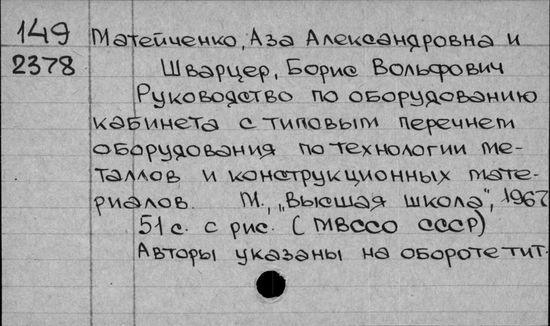 149 Матейченко, Аза Александровна и
2378 Шварцер, Борис Вольфович
Руководство по оборудованию
кабинета с типовым перечнем
оборудования по технологии ме-
таллов и конструкционных мате-
риалов. М., „Высшая школа", 1967
51 с. с рис. (МВССО СССР)
Авторы указаны на обороте тит.